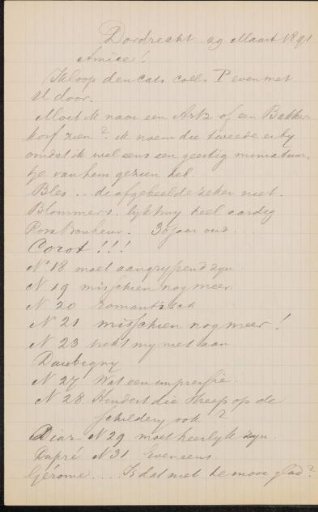 Dordrecht 29 Maart 1891
Amice!
Ik loop den cat. coll. P even met
U door.
Moet ik naar een Artz of een Bakker
Korf zien? ik noem die tweede er by
omdat ik wel eens een geestig miniatuur
tje van hem gezien heb.
Bles .. de afgebeelde zeker niet.
Blommers lykt my heel aardig
30 jaar oud.
Corot!!!
No 18 moet aangrypend zyn
N 19 misschien nog meer
N 20 romantisch
N 21 misschien nog meer!
N 23 trekt my niet aan
Daubigny
N 27 Wat een impressie.
N 28 Hindert die streep op de
schildery ook?
Diaz N 29 moet heerlyk zyn
Dupré N 31 Eveneens
Gérome .... Is dat niet te mooi glad?